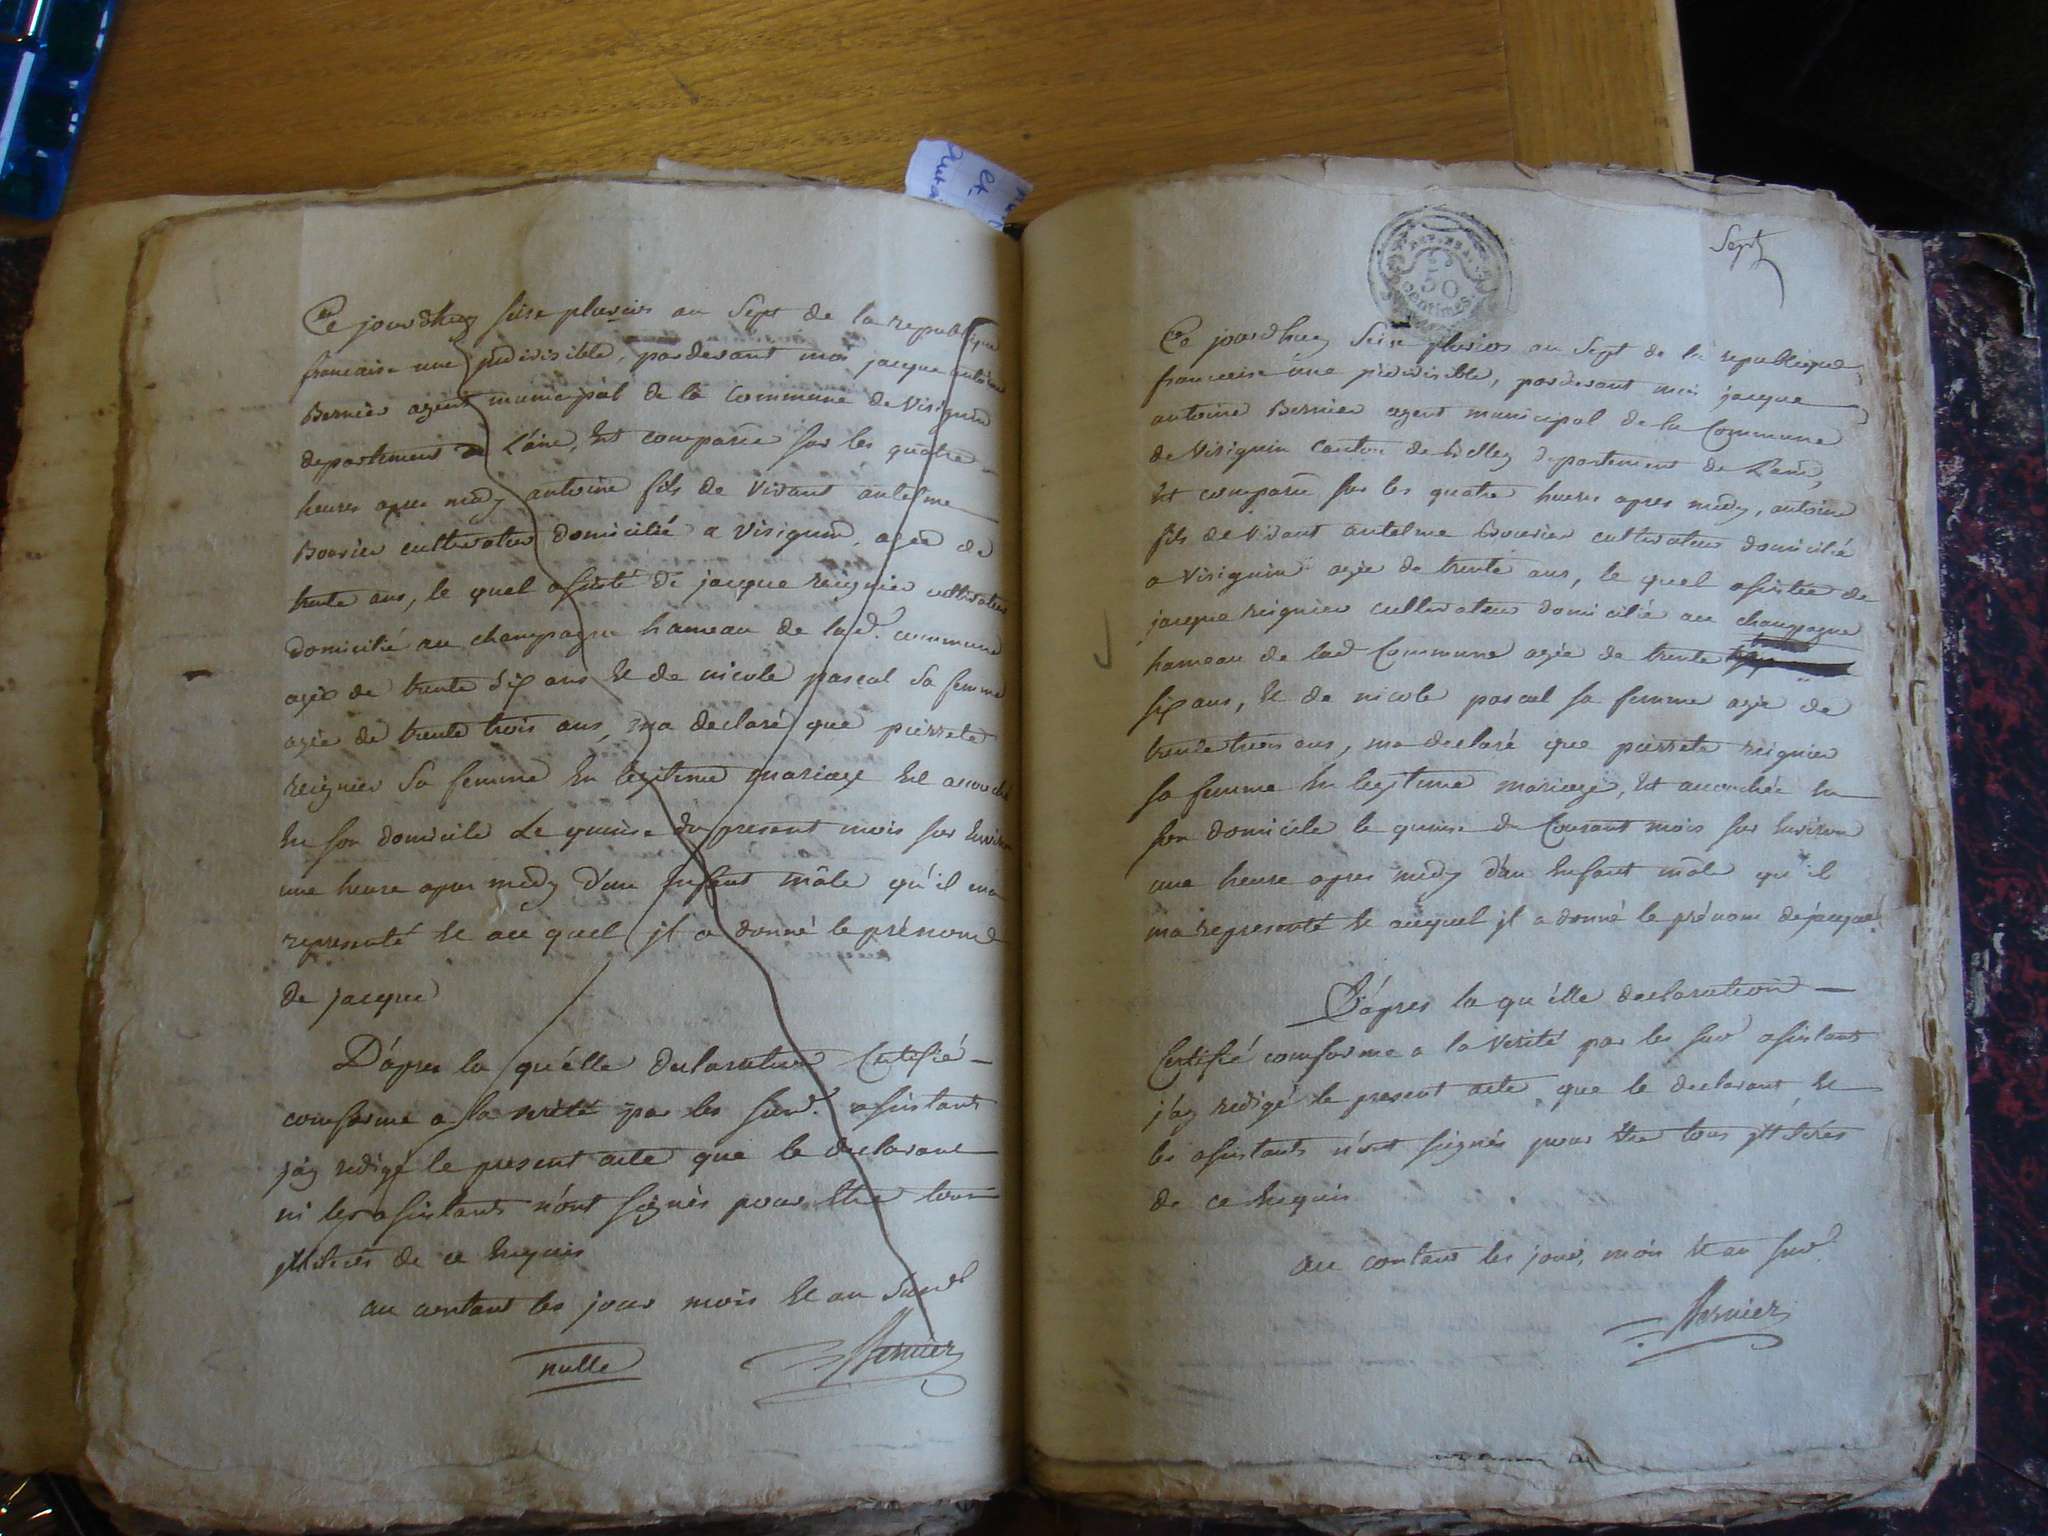 Ce jourdhuy seise pluviois an Sept de la republique
francaise une jndivisible, pardevant moi jacque antoine
Bernier agent municipal de la Commune de Virignin
departement de L'ain, Est comparüe sur les quatre
heures apres midy antoine fils de vivant antelme
Bouvier cultivateur domicilié a Virignin, agée de
trente ans, le quel assisté de jacque reignier cultivateur
domicilié au champagne hameau de lad. commune
agée de trente six ans Et de nicole pascal sa femme
agée de trente trois ans, ma declaré que pierrete
reignier sa femme En legitime mariage Est accouché
En son domicile Le quinse du present mois sur Environ
une heure apres midy d'un Enfant mâle qu'il ma
representé Et au quel jl a donné le prénom
de jacque
D'apres la qu'elle declaration Certifié
conforme a la verité par les susd. assistants
j'ay redigé le present acte que le declarant
ni les assistants n'ont signés pour Etre tous
jlliterés de ce Enquis
au contant les jour mois Et an Susd
nulle Bernier
Sept
50
centimes
Ce jourdhuy Seise pluviois an Sept de la republique
francaise une jndivisible, pardevant moi jacque
antoine Bernier agent municipal de la Commune
de Virignin Canton de belley departement de L'ain,
Est comparüe sur les quatre heures apres midy, antoine
fils de vivant antelme Bouvier cultivateur domicilié
a Virignin agée de trente ans, le quel assistée de
jacque reignier cultivateur domicilié au champagne
hameau de lad Commune agée de trente
six ans, Et de nicole pascal sa femme agée de
trente trois ans, ma declaré que pierrete reignier
sa femme En legitime mariage, Est accouchée En
son domicile le quinse du Courant mois sur Environ
une heure apres midy d'un Enfant mâle qu'il
ma representé Et auquel jl a donné le prénom de jacque
D'apres la qu'elle declaration
Certifié conforme a la verité par les susd assistants
j'ay redigé le present acte que le declarant, Et
les assistants n'ont signés pour Etre tous jlliterés
de ce Enquis
au contant les jour, mois Et an susd.
Bernier